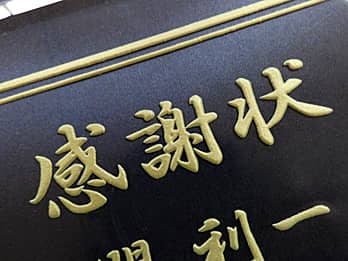 感謝状
利一